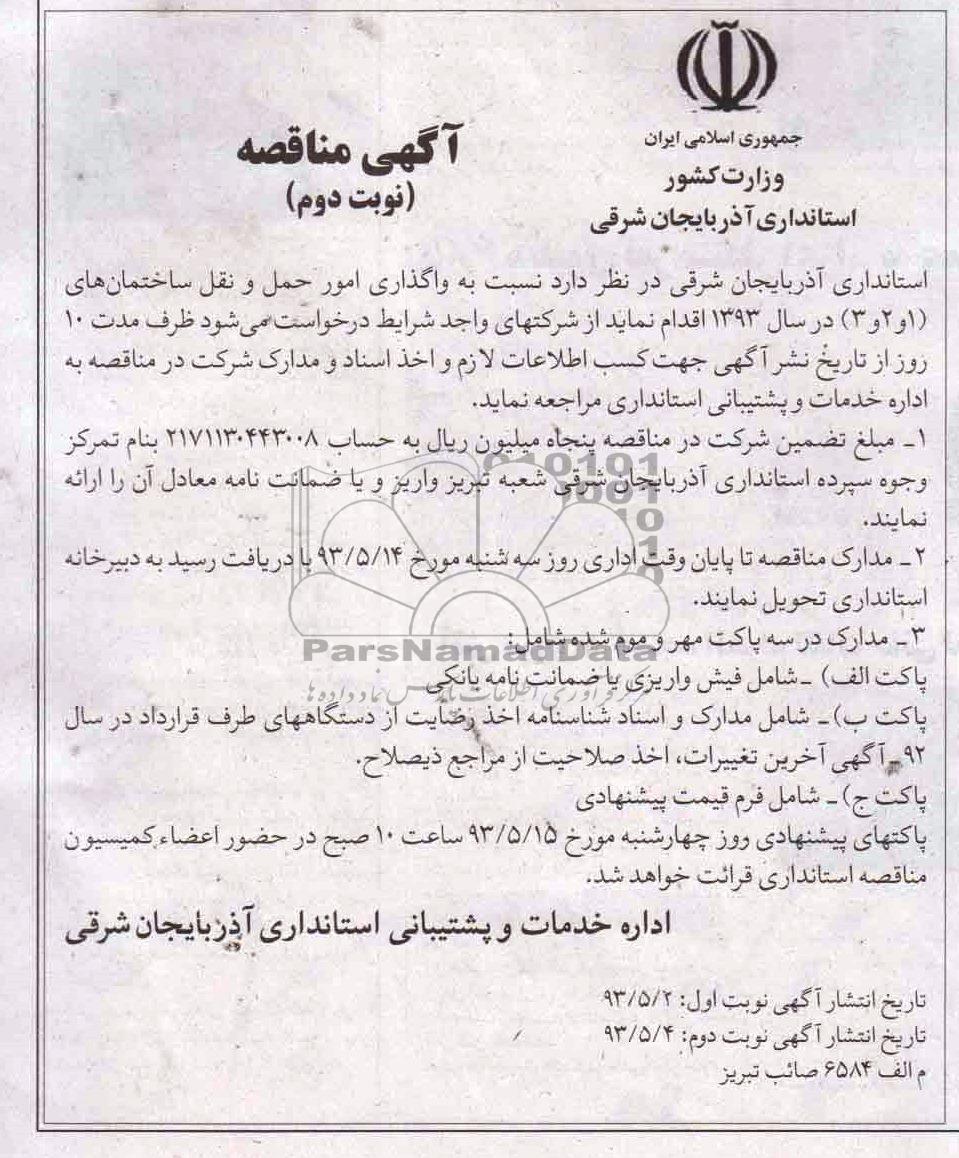 جمهوری اسلامی ایران
وزارت کشور
استانداری آذربایجان شرقی
آگهی مناقصه
(نوبت دوم)
استانداری آذربایجان شرقی در نظر دارد نسبت به واگذاری امور حمل و نقل ساختمان‌های
(۱و۲و۳) در سال ۱۳۹۳ اقدام نماید از شرکتهای واجد شرایط درخواست می‌شود ظرف مدت ۱۰
روز از تاریخ نشر آگهی جهت کسب اطلاعات لازم و اخذ اسناد و مدارک شرکت در مناقصه به
اداره خدمات و پشتیبانی استانداری مراجعه نماید.
۱ـ مبلغ تضمین شرکت در مناقصه پنجاه میلیون ریال به حساب ۲۱۷۱۱۳۰۴۴۳۰۰۸ بنام تمرکز
وجوه سپرده استانداری آذربایجان شرقی شعبه تبریز واریز و یا ضمانت نامه معادل آن را ارائه
نمایند.
۲ـ مدارک مناقصه تا پایان وقت اداری روز سه شنبه مورخ ۹۳/۵/۱۴ با دریافت رسید به دبیرخانه
استانداری تحویل نمایند.
۳ـ مدارک در سه پاکت مهر و موم شده شامل:
پاکت الف) ـ شامل فیش واریزی یا ضمانت نامه بانکی
پاکت ب) ـ شامل مدارک و اسناد شناسنامه اخذ رضایت از دستگاههای طرف قرارداد در سال
۹۲ـ آگهی آخرین تغییرات، اخذ صلاحیت از مراجع ذیصلاح.
پاکت ج) ـ شامل فرم قیمت پیشنهادی
پاکتهای پیشنهادی ووز چهارشنبه مورخ ۹۳/۵/۱۵ ساعت ۱۰ صبح در حضور اعضاء کمیسیون
مناقصه استانداری قرائت خواهد شد.
اداره خدمات و پشتیبانی استانداری آذربایجان شرقی
تاریخ انتشار آگهی نوبت اول: ۹۳/۵/۲
تاریخ انتشار آگهی نوبت دوم: ۹۳/۵/۴
م الف ۶۵۸۴ صائب تبریز
ParsNamadData